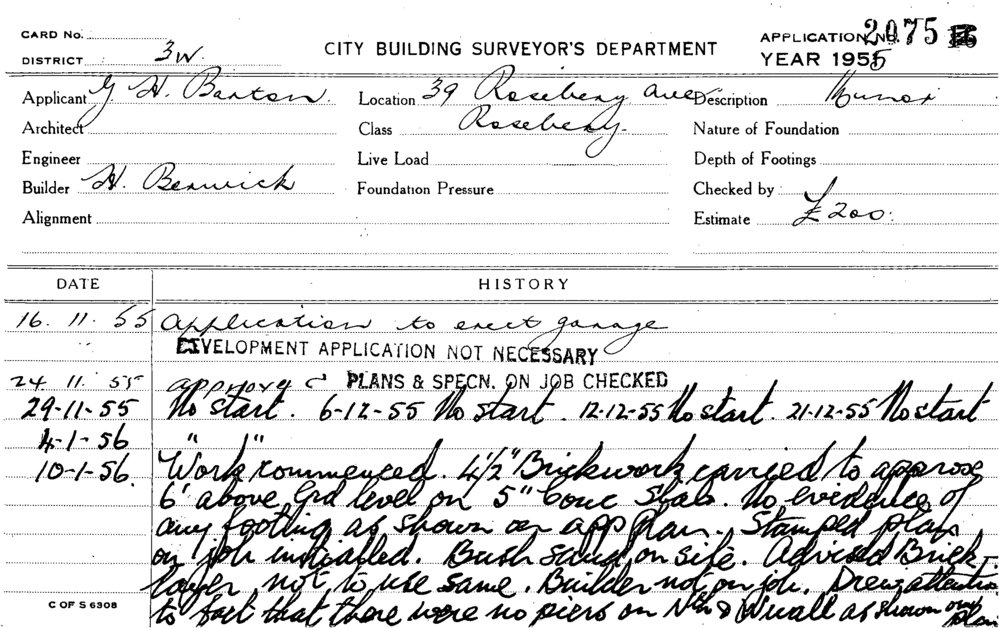 CARD No.
DISTRICT 3W.
CITY BUILDING SURVEYOR'S DEPARTMENT
APPLICATION No. 2075
YEAR 1955
Applicant G. H. Barton. Location 39 Rosebery Ave. Description Minor
Architect Class Rosebery. Nature of Foundation
Engineer Live Load Depth of Footings
Builder H. Berwick Foundation Pressure Checked by
Alignment Estimate £200.
DATE HISTORY
16. 11. 55 Application to erect garage
DEVELOPMENT APPLICATION NOT NECESSARY
24. 11. 55 approved PLANS & SPECN. ON JOB CHECKED
29-11-55 No start. 6-12-55 No start. 12-12-55 No start. 21-12-55 No start
4-1-56 " "
10-1-56. Work commenced. 4½" Brickwork carried to approx
6' above Grd level on 5" Conc Slab. No evidence of
any footing as shown on app plan. Stamped plans
on job initialled. Bush sand on site. Advised Brick-
layer not to use same. Builder not on job. Drew attention
to fact that there were no piers on Nth & W wall as shown on plan
C OF S 6308